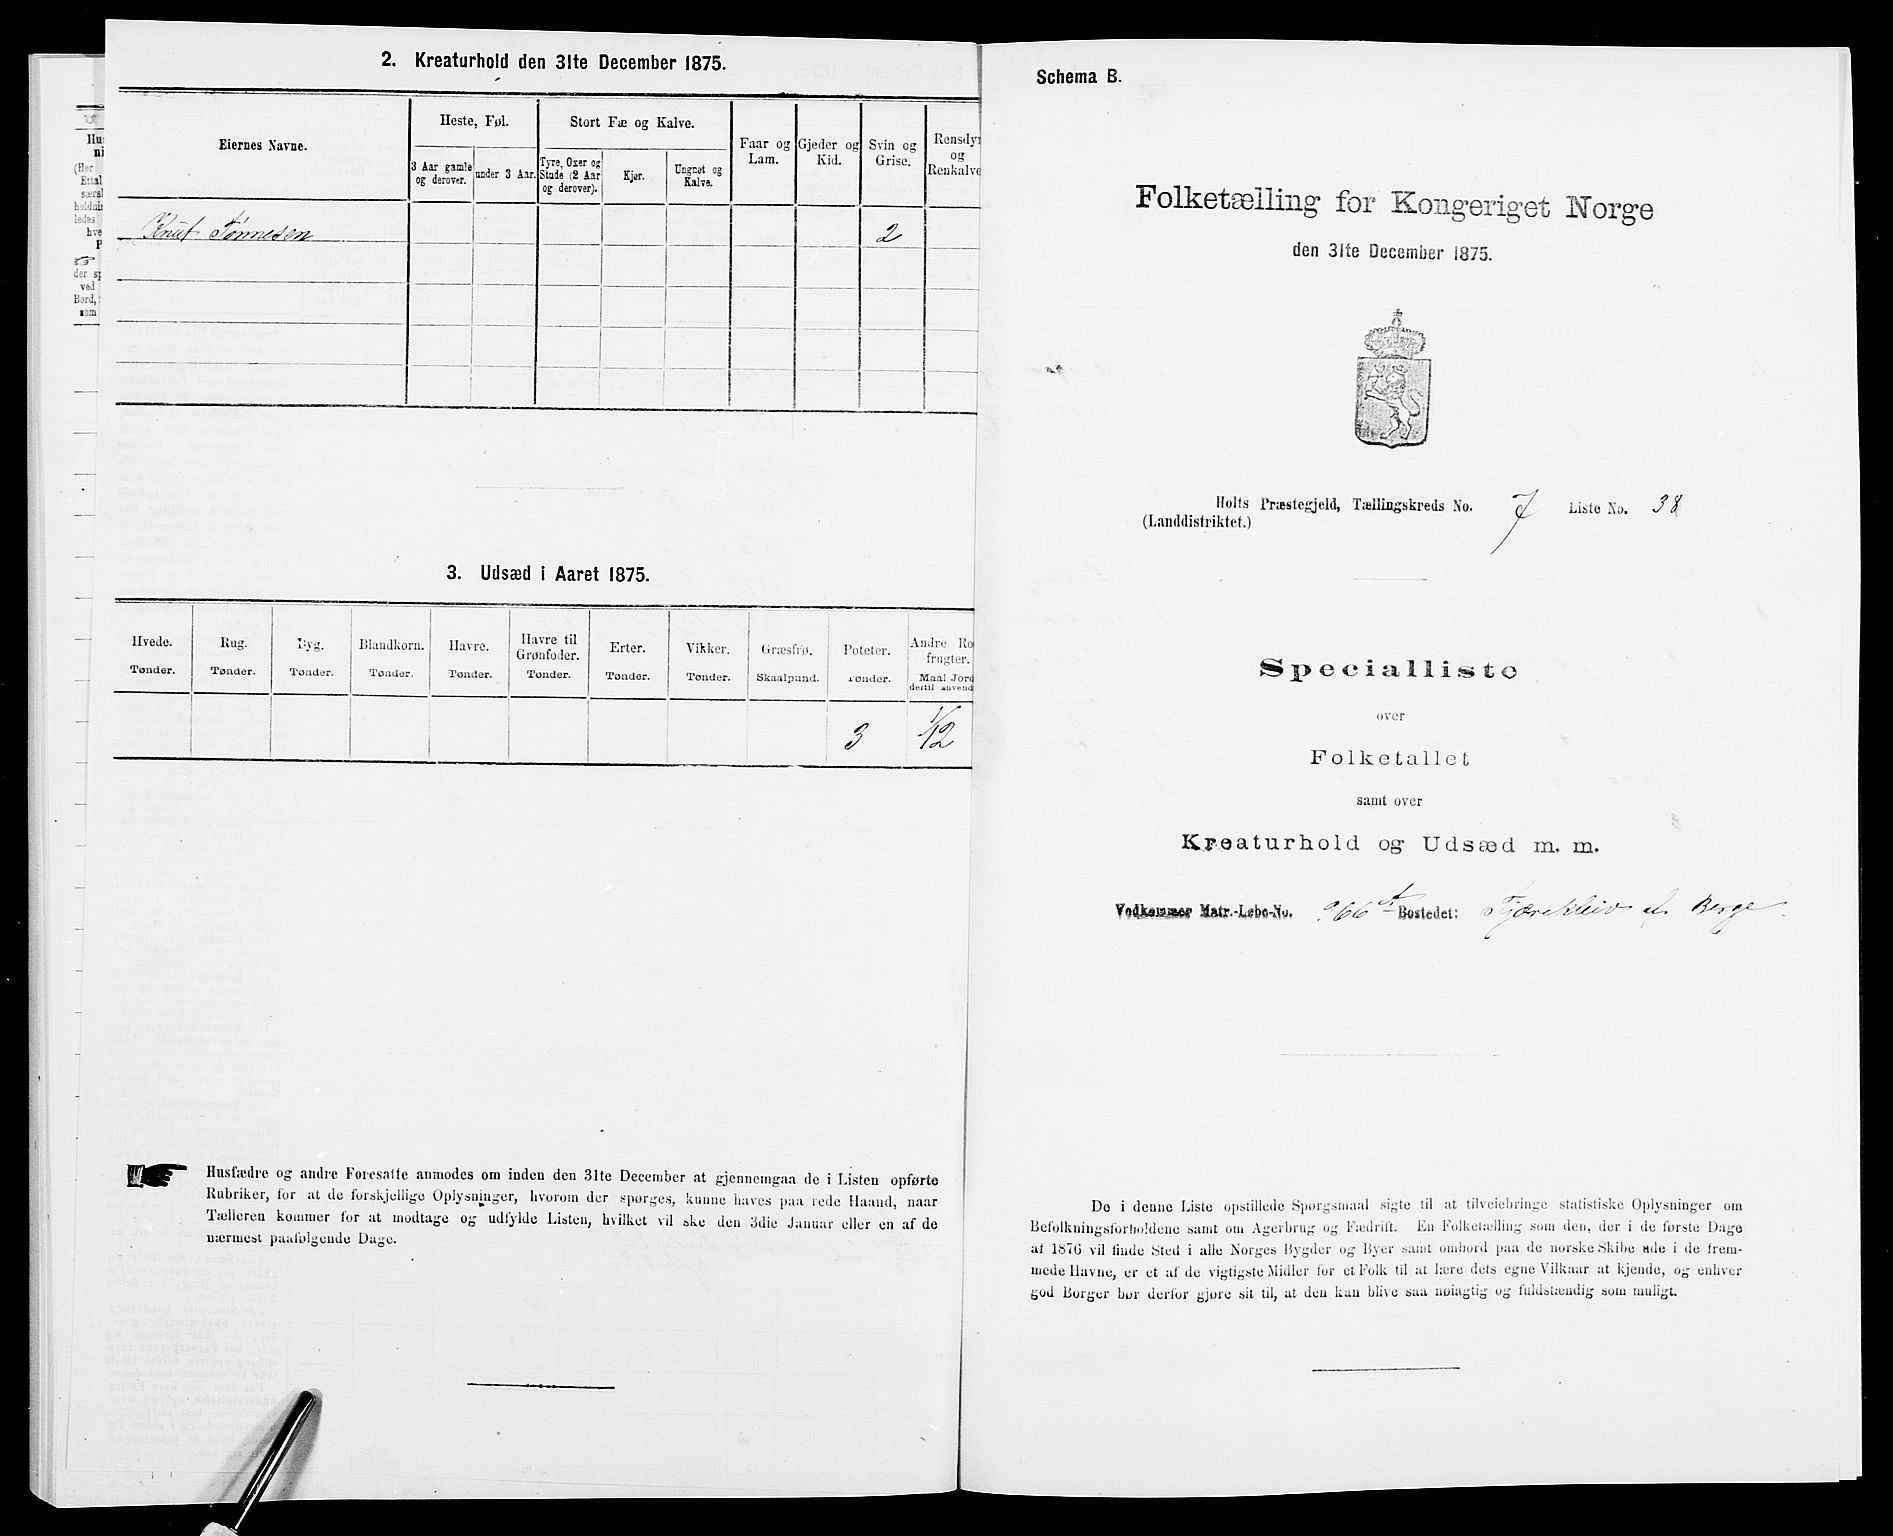 2. Kreaturhold den 31te December 1875.
Eiernes Navne.
Heste, Føl.
Stort Fæ og Kalve.
Faar og
Lam.
Gjeder og
Kid.
Svin og
Grise.
Rensdyr
og
Renkalve
3 Aar gamle
og derover.
under 3 Aar.
Tyre, Oxer og
Stude (2 Aar
og derover).
Kjør.
Ungnøt og
Kalve.
Knut Tønnesen 2
3. Udsæd i Aaret 1875.
Hvede.
Tønder.
Rug.
Tønder.
Byg.
Tønder.
Blandkorn.
Tønder.
Havre.
Tønder.
Havre til
Grønfoder.
Tønder.
Erter.
Tønder.
Vikker.
Tønder.
Græsfrø.
Skaalpund.
Poteter.
Tønder.
Andre Ro
frugter.
Maal Jord
dertil anvend
3 1/12
Husfædre og andre Foresatte anmodes om inden den 31te December at gjennemgaa de i Listen opførte
Rubriker, for at de forskjellige Oplysninger, hvorom der spørges, kunne haves paa rede Haand, naar
Tælleren kommer for at modtage og udfylde Listen, hvilket vil ske den 3die Januar eller en af de
nærmest paafølgende Dage.
Schema B.
Folketælling for Kongeriget Norge
den 31te December 1875.
Holts Præstegjeld, Tællingskreds No. 7 Liste No. 38
(Landdistriktet.)
Specialliste
over
Folketallet
samt over
Kreaturhold og Udsæd m. m.
Vedkommer Matr.-Løbe-No. 966 A Bostedet: Fjærekleiv af Berge.
De i denne Liste opstillede Spørgsmaal sigte til at tilveiebringe statistiske Oplysninger om
Befolkningsforholdene samt om Agerbrug og Fædrift. En Folketælling som den, der i de første Dage
af 1876 vil finde Sted i alle Norges Bygder og Byer samt ombord paa de norske Skibe ude i de frem-
mede Havne, er et af de vigtigste Midler for et Folk til at lære dets egne Vilkaar at kjende, og enhver
god Borger bør derfor gjøre sit til, at den kan blive saa nøiagtig og fuldstændig som muligt.